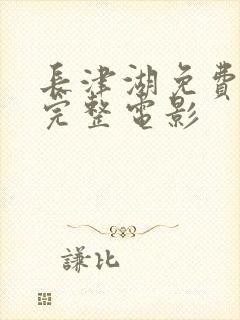 長津湖免費
完整電影
謙比